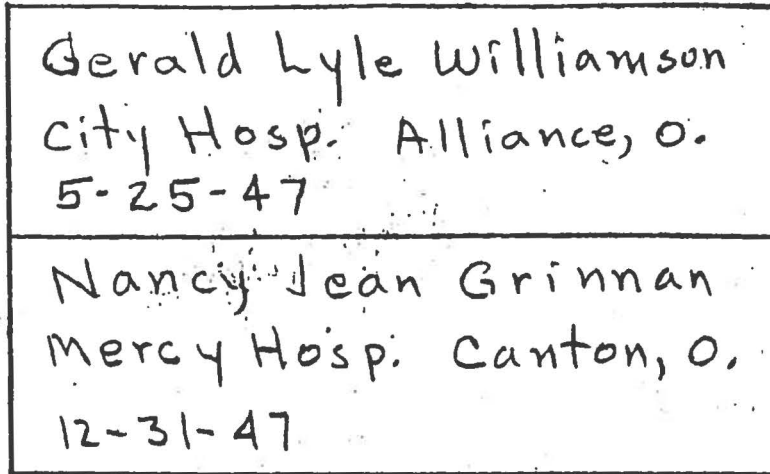 Gerald Lyle Williamson
City Hosp. Alliance, O.
5-25-47
Nancy Jean Grinnan
Mercy Hosp. Canton, O.
12-31-47